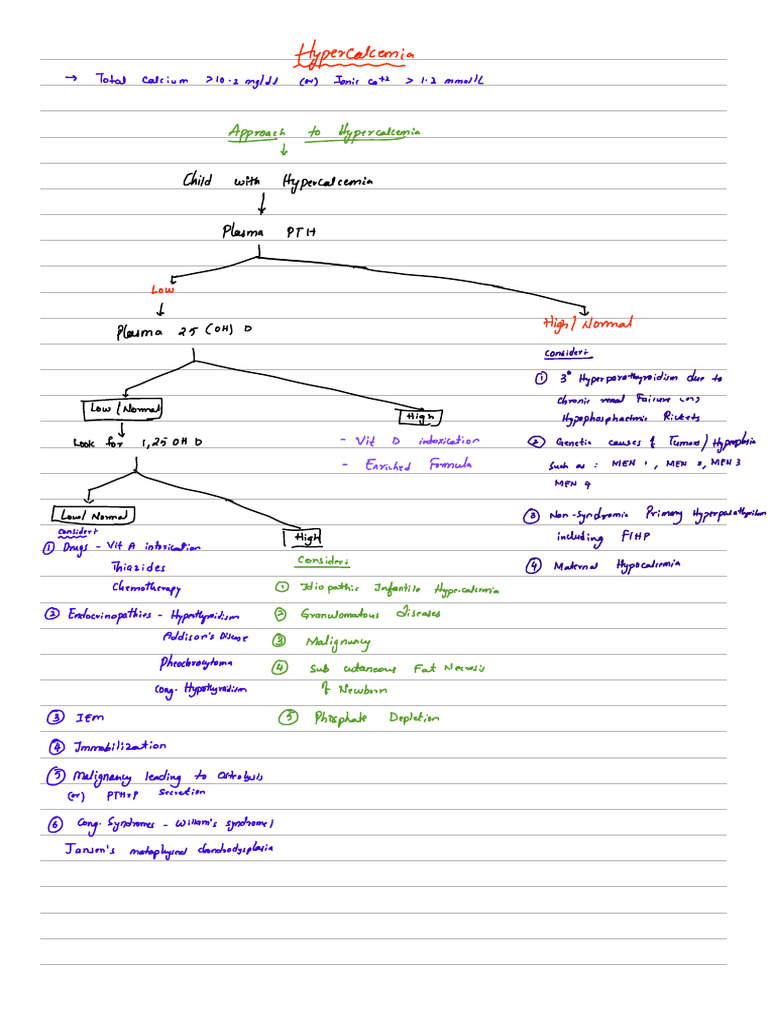 Hypercalcemia
→ Total Calcium >10.2 mg/dl (or) Ionic Ca+2 > 1.2 mmol/L
Approach to Hypercalcemia
Child with Hypercalcemia
Plasma PTH
Low
Plasma 25 (OH) D
Low / Normal
Look for 1,25 OH D
High
- Vit D intoxication
- Enriched Formula
Low/ Normal
Consider:
① Drugs - Vit A intoxication
Thiazides
Chemotherapy
② Endocrinopathies - Hyperthyroidism
Addison's Disease
Pheochrocytoma
Cong. Hypothyroidism
③ IEM
④ Immobilization
⑤ Malignancy leading to
(or) PTHrP Secretion
⑥ Cong. Syndromes - William's syndrome /
Jansen's metaphyseal chondrodysplasia
High
Consider:
① Idiopathic Infantile Hypercalcemia
② Granulomatous Diseases
③ Malignancy
④ Sub cutaneous Fat Necrosis
of Newborn
⑤ Phosphate Depletion
High/ Normal
Consider:
① 3° Hyperparathyroidism due to
chronic renal Failure (or)
Hypophosphatemic Rickets
② Genetic causes of Tumors/ Hyperplasia
Such as : MEN 1, MEN 2, MEN 3
MEN 4
③ Non-Syndromic Primary Hyperparathyroidism
including FIHP
④ Maternal Hypocalcemia